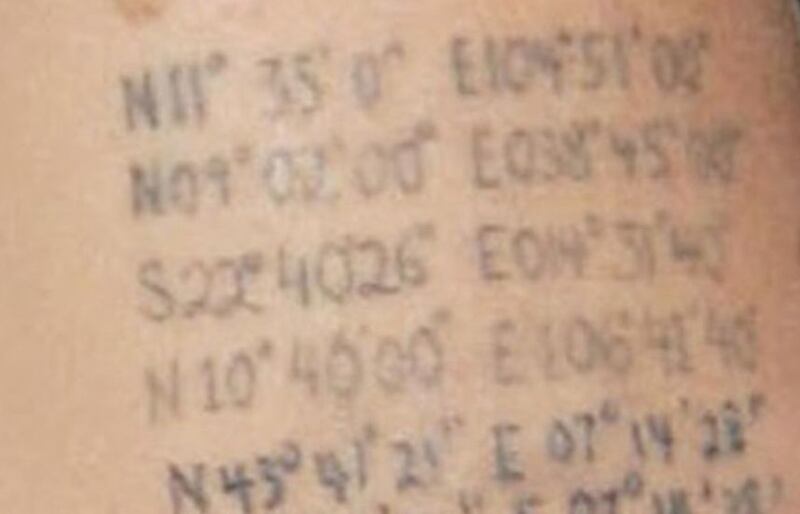 N11° 35' 0" E104°51'02"
N09°02'00" E038°45'00"
S22°40'26" E014°31'40"
N10°46'00" E106°41'40"
N43°41'21" E 07°14'28"
E 07°14'28"